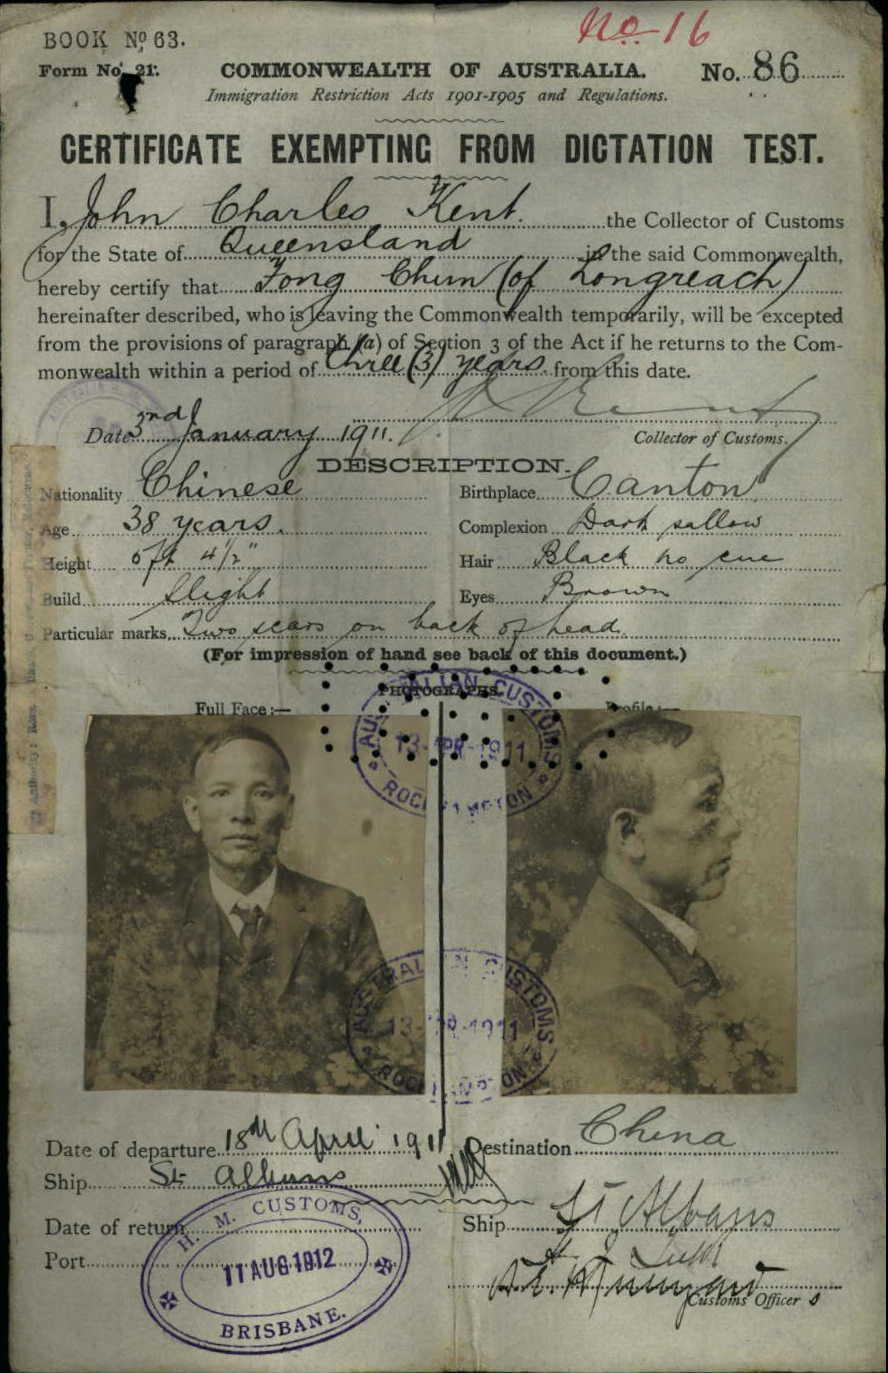 BOOK No 63.
No. 16
Form No. 21.
COMMONWEALTH OF AUSTRALIA.
No. 86
Immigration Restriction Acts 1901-1905 and Regulations.
CERTIFICATE EXEMPTING FROM DICTATION TEST.
I, John Charles Kent. the Collector of Customs
for the State of Queensland in the said Commonwealth,
hereby certify that Fong Chun (of Longreach)
hereinafter described, who is leaving the Commonwealth temporarily, will be excepted
from the provisions of paragraph (a) of Section 3 of the Act if he returns to the Com-
monwealth within a period of three (3) years from this date.
Date 3rd January 1911.
Collector of Customs.
DESCRIPTION.
Nationality Chinese
Birthplace Canton
Age 38 years.
Complexion Dark sallow
Height 5ft 4½"
Hair Black no cue
Build Slight
Eyes Brown
Particular marks Two scars on back of head.
(For impression of hand see back of this document.)
PHOTOGRAPHS.
Full Face:—
Profile:—
AUSTRALIAN CUSTOMS
13 APR 1911
ROCKHAMPTON
AUSTRALIAN CUSTOMS
13 APR 1911
ROCKHAMPTON
Date of departure 18th April 1911
Destination China
Ship St Albans
Date of return
Ship St Albans
Port
H. M. CUSTOMS,
11 AUG 1912
BRISBANE.
Customs Officer s